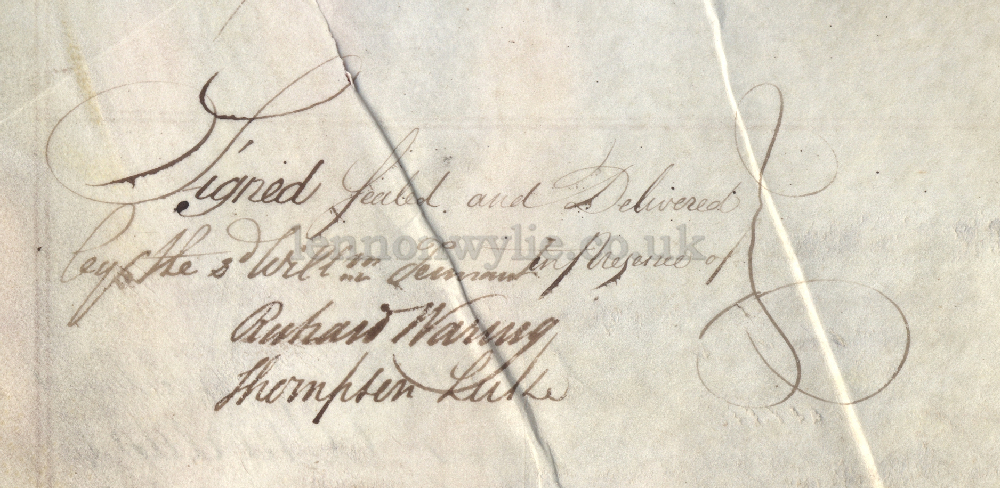 Signed Sealed and Delivered
by the sd Willm in Presence of
lennonwylie.co.uk
Richard Waring
Thompson